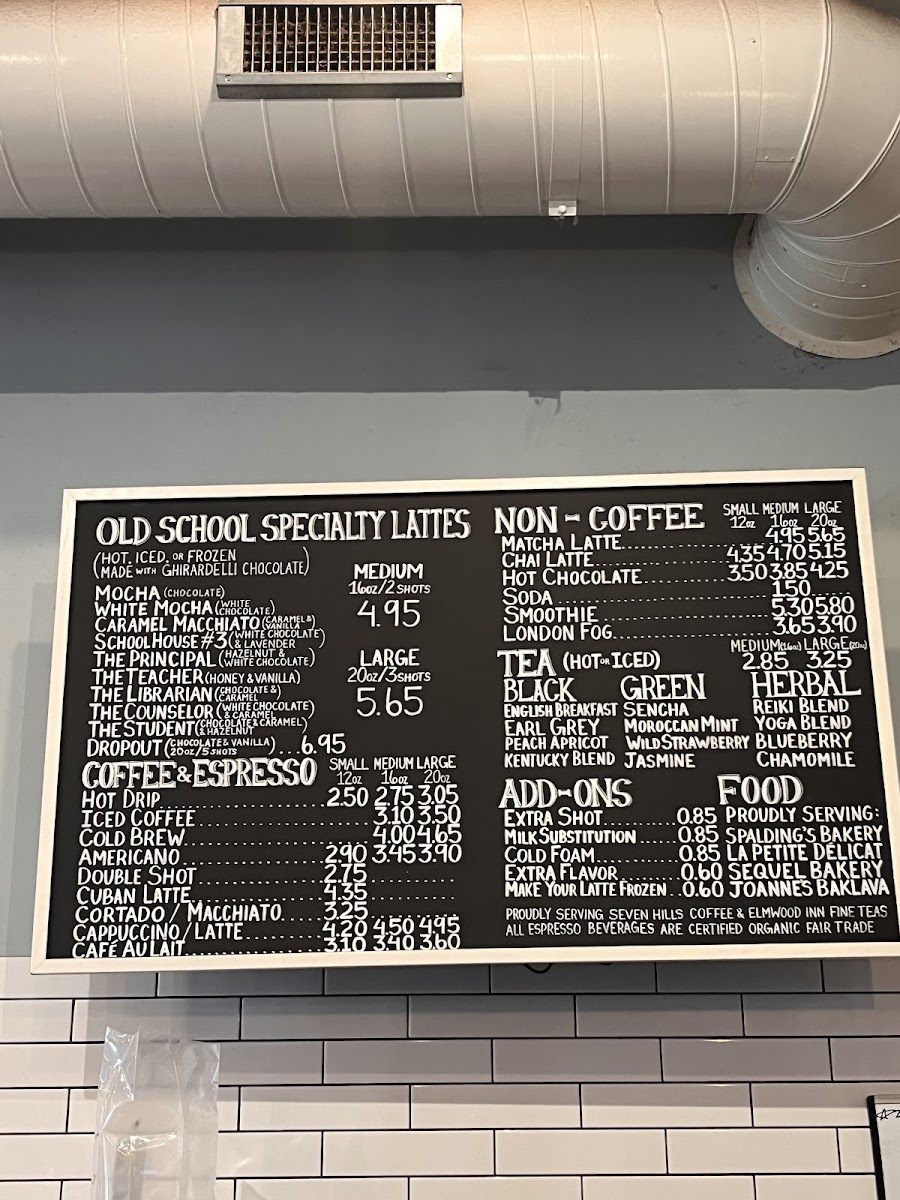 OLD SCHOOL SPECIALTY LATTES
(HOT, ICED, OR FROZEN
MADE WITH GHIRARDELLI CHOCOLATE)
MEDIUM
16oz/2 SHOTS
4.95
LARGE
20oz/3 SHOTS
5.65
MOCHA (CHOCOLATE)
WHITE MOCHA (WHITE CHOCOLATE)
CARAMEL MACCHIATO (CARAMEL & VANILLA)
SCHOOLHOUSE #3 (WHITE CHOCOLATE & LAVENDER)
THE PRINCIPAL (HAZELNUT & WHITE CHOCOLATE)
THE TEACHER (HONEY & VANILLA)
THE LIBRARIAN (CHOCOLATE & CARAMEL)
THE COUNSELOR (WHITE CHOCOLATE & CARAMEL)
THE STUDENT (CHOCOLATE & CARAMEL & HAZELNUT)
DROPOUT (CHOCOLATE & VANILLA 20oz/5 SHOTS)...6.95
COFFEE & ESPRESSO SMALL MEDIUM LARGE
12oz 16oz 20oz
HOT DRIP 2.50 2.75 3.05
ICED COFFEE 3.10 3.50
COLD BREW 4.00 4.65
AMERICANO 2.90 3.45 3.90
DOUBLE SHOT 2.75
CUBAN LATTE 4.35
CORTADO / MACCHIATO 3.25
CAPPUCCINO / LATTE 4.20 4.50 4.95
CAFÉ AU LAIT 3.10 3.40 3.60
NON-COFFEE SMALL MEDIUM LARGE
12oz 16oz 20oz
MATCHA LATTE 4.95 5.65
CHAI LATTE 4.35 4.70 5.15
HOT CHOCOLATE 3.50 3.85 4.25
SODA 1.50
SMOOTHIE 5.30 5.80
LONDON FOG 3.65 3.90
TEA (HOT OR ICED) MEDIUM (16oz) LARGE (20oz)
2.85 3.25
BLACK GREEN HERBAL
ENGLISH BREAKFAST SENCHA REIKI BLEND
EARL GREY MOROCCAN MINT YOGA BLEND
PEACH APRICOT WILD STRAWBERRY BLUEBERRY
KENTUCKY BLEND JASMINE CHAMOMILE
ADD-ONS FOOD
EXTRA SHOT 0.85 PROUDLY SERVING:
MILK SUBSTITUTION 0.85 SPALDING'S BAKERY
COLD FOAM 0.85 LA PETITE DÉLICAT
EXTRA FLAVOR 0.60 SEQUEL BAKERY
MAKE YOUR LATTE FROZEN 0.60 JOANNE'S BAKLAVA
PROUDLY SERVING SEVEN HILLS COFFEE & ELMWOOD INN FINE TEAS
ALL ESPRESSO BEVERAGES ARE CERTIFIED ORGANIC FAIR TRADE